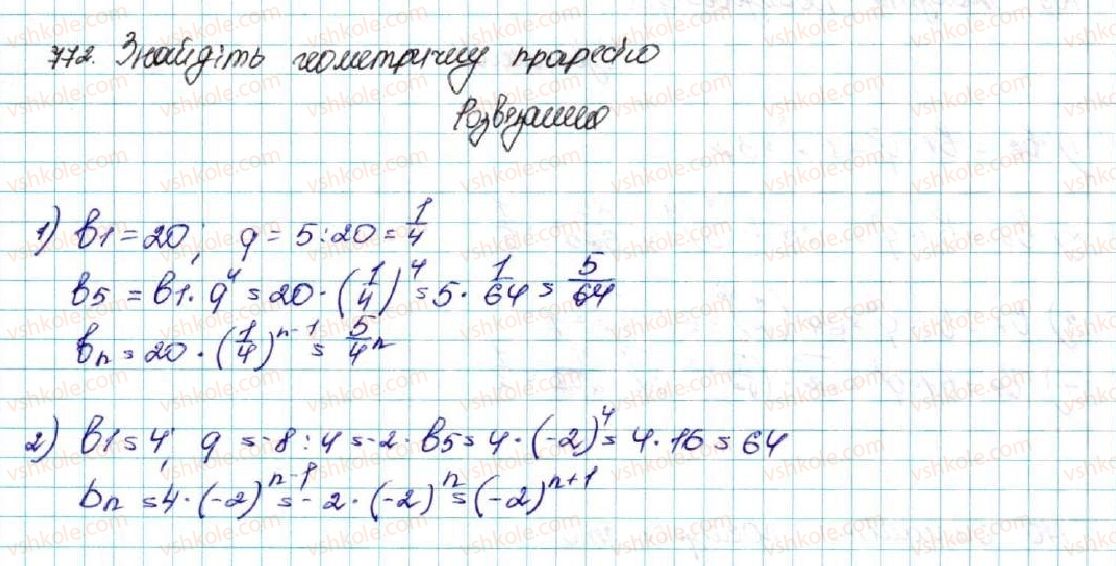 772. Знайдіть геометричну прогресію
Розв'язання
1) b1 = 20; q = 5:20 = 1/4
b5 = b1 · q^4 = 20 · (1/4)^4 = 5 · 1/64 = 5/64
bn = 20 · (1/4)^n-1 = 5/4 n
2) b1 = 4; q = -8 : 4 = -2 · b5 = 4 · (-2)^4 = 4 · 16 = 64
bn = 4 · (-2)^n-1 = -2 · (-2)^n = (-2)^n+1